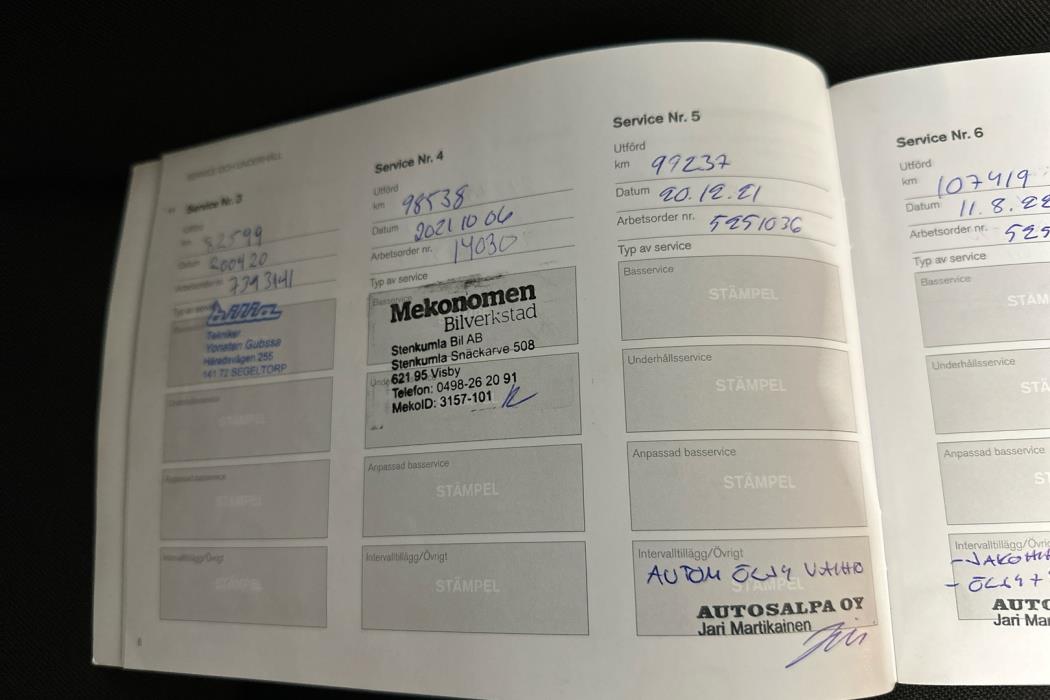 SERVICE OCH UNDERHÅLL
Service Nr. 3
Utförd
km 82599
Datum 200420
Arbetsorder nr. 7393141
Typ av service
Tekniker
Yonatan Gubssa
Häradsvägen 255
141 72 SEGELTORP
Underhållsservice
STÄMPEL
Anpassad basservice
STÄMPEL
Intervalltillägg/Övrigt
STÄMPEL
6
Service Nr. 4
Utförd
km 98538
Datum 2021 10 06
Arbetsorder nr. 14030
Typ av service
Basservice
Mekonomen
Bilverkstad
Stenkumla Bil AB
Stenkumla Snäckarve 508
621 95 Visby
Telefon: 0498-26 20 91
MekoID: 3157-101
Anpassad basservice
STÄMPEL
Intervalltillägg/Övrigt
STÄMPEL
Service Nr. 5
Utförd
km 99237
Datum 20.12.21
Arbetsorder nr. 5251036
Typ av service
Basservice
STÄMPEL
Underhållsservice
STÄMPEL
Anpassad basservice
STÄMPEL
Intervalltillägg/Övrigt
STÄMPEL
AUTOM ÖLJY VAIHD
AUTOSALPA OY
Jari Martikainen
Service Nr. 6
Utförd
km 107419
Datum 11.8.22
Arbetsorder nr. 525
Typ av service
Basservice
STÄM
Underhållsservice
STÄ
Anpassad basservice
ST
Intervalltillägg/Övri
AUTO
Jari Ma